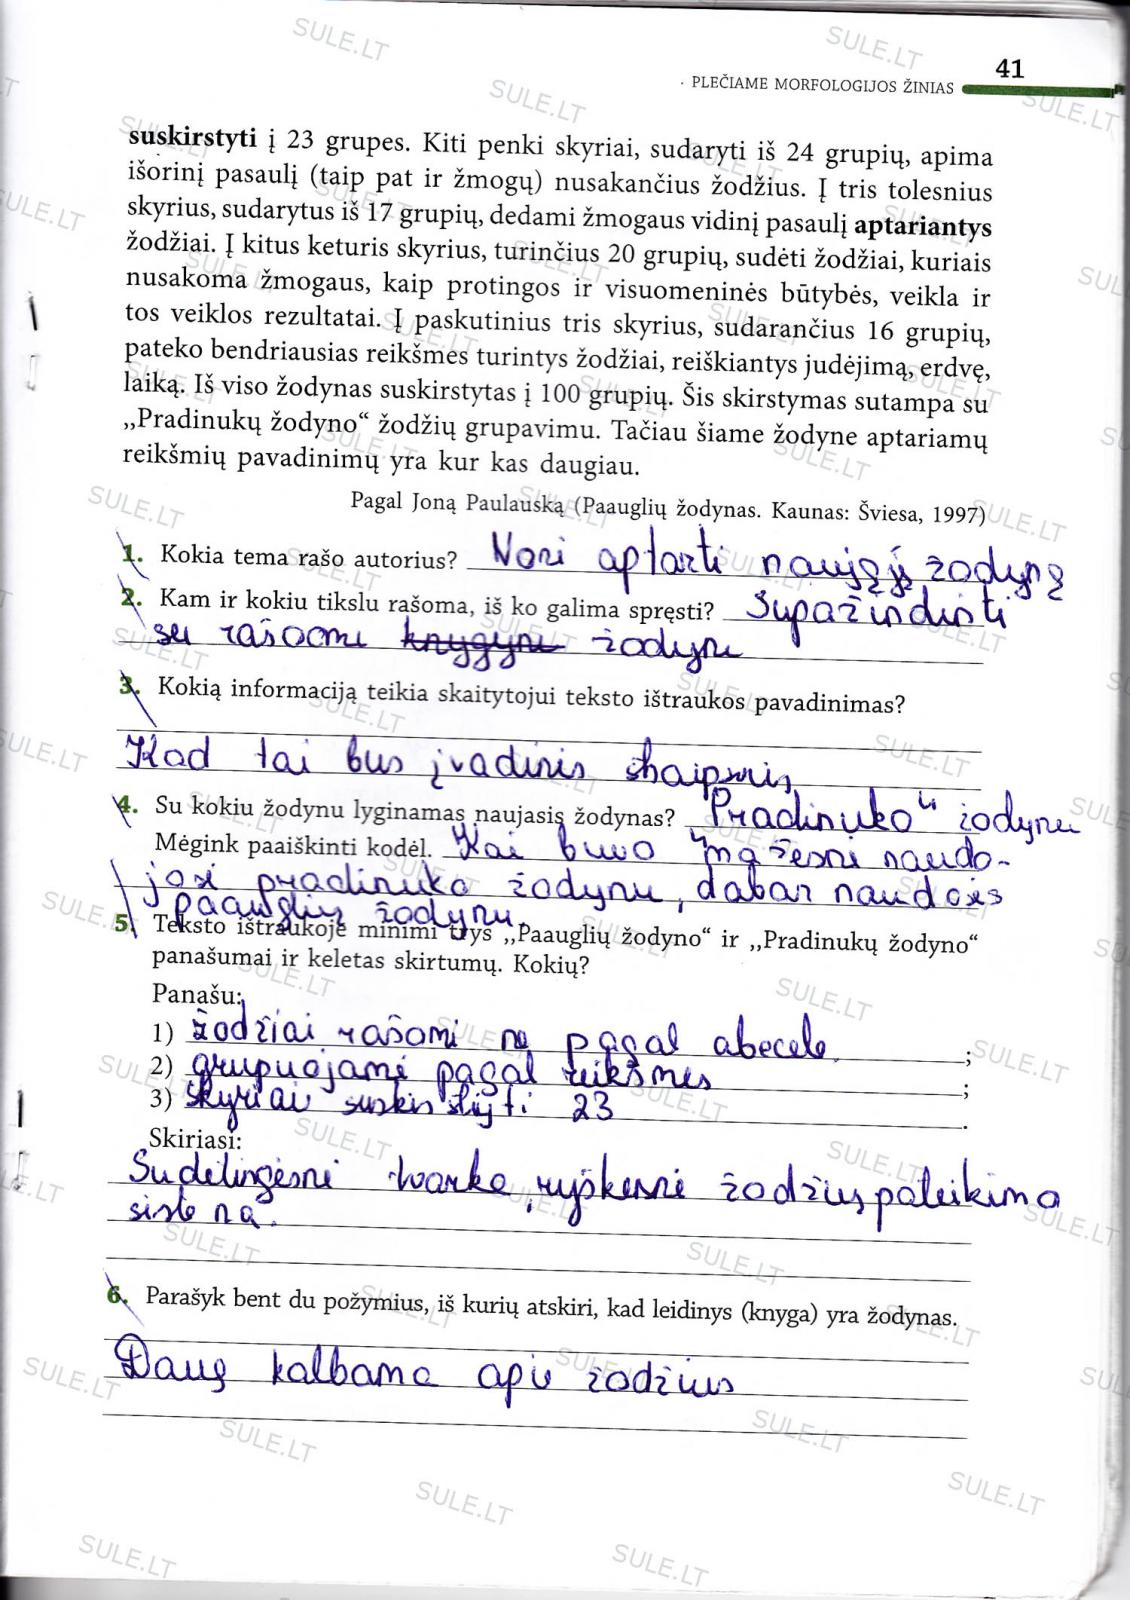 41
PLEČIAME MORFOLOGIJOS ŽINIAS
suskirstyti į 23 grupes. Kiti penki skyriai, sudaryti iš 24 grupių, apima
išorinį pasaulį (taip pat ir žmogų) nusakančius žodžius. Į tris tolesnius
skyrius, sudarytus iš 17 grupių, dedami žmogaus vidinį pasaulį aptariantys
žodžiai. Į kitus keturis skyrius, turinčius 20 grupių, sudėti žodžiai, kuriais
nusakoma žmogaus, kaip protingos ir visuomeninės būtybės, veikla ir
tos veiklos rezultatai. Į paskutinius tris skyrius, sudarančius 16 grupių,
pateko bendriausias reikšmes turintys žodžiai, reiškiantys judėjimą, erdvę,
laiką. Iš viso žodynas suskirstytas į 100 grupių. Šis skirstymas sutampa su
„Pradinukų žodyno“ žodžių grupavimu. Tačiau šiame žodyne aptariamų
reikšmių pavadinimų yra kur kas daugiau.
Pagal Joną Paulauską (Paauglių žodynas. Kaunas: Šviesa, 1997)
1. Kokia tema rašo autorius? Nori aptarti naująjį žodyną
2. Kam ir kokiu tikslu rašoma, iš ko galima spręsti? Supažindinti
su rašomu knygynu žodynu
3. Kokią informaciją teikia skaitytojui teksto ištraukos pavadinimas?
Kad tai bus įvadinis
4. Su kokiu žodynu lyginamas naujasis žodynas? "Pradinuko" žodynu
Mėgink paaiškinti kodėl. Kai buvo mažesni naudo-
josi pradinuko žodynu, dabar naudosis
paauglių žodynu.
5. Teksto ištraukoje minimi trys „Paauglių žodyno“ ir „Pradinukų žodyno“
panašumai ir keletas skirtumų. Kokių?
Panašu:
1) žodžiai rašomi ne pagal abecele. ;
2) grupuojami pagal reikšmes ;
3) skyriai suskirstyti 23 .
Skiriasi:
Sudėtingesnė tvarka, ryškesnė žodžių pateikimo
sistema.
6. Parašyk bent du požymius, iš kurių atskiri, kad leidinys (knyga) yra žodynas.
Daug kalbama apie žodžius
SULE.LT